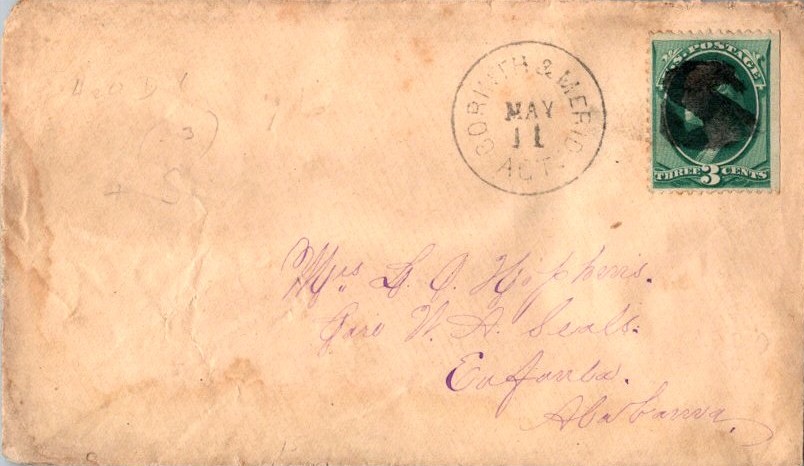 CORINTH & MERID.
MAY
11
AGT.
U.S. POSTAGE
THREE 3 CENTS
3
Mrs
Care W. A. Seals.
Eufaula.
Alabama